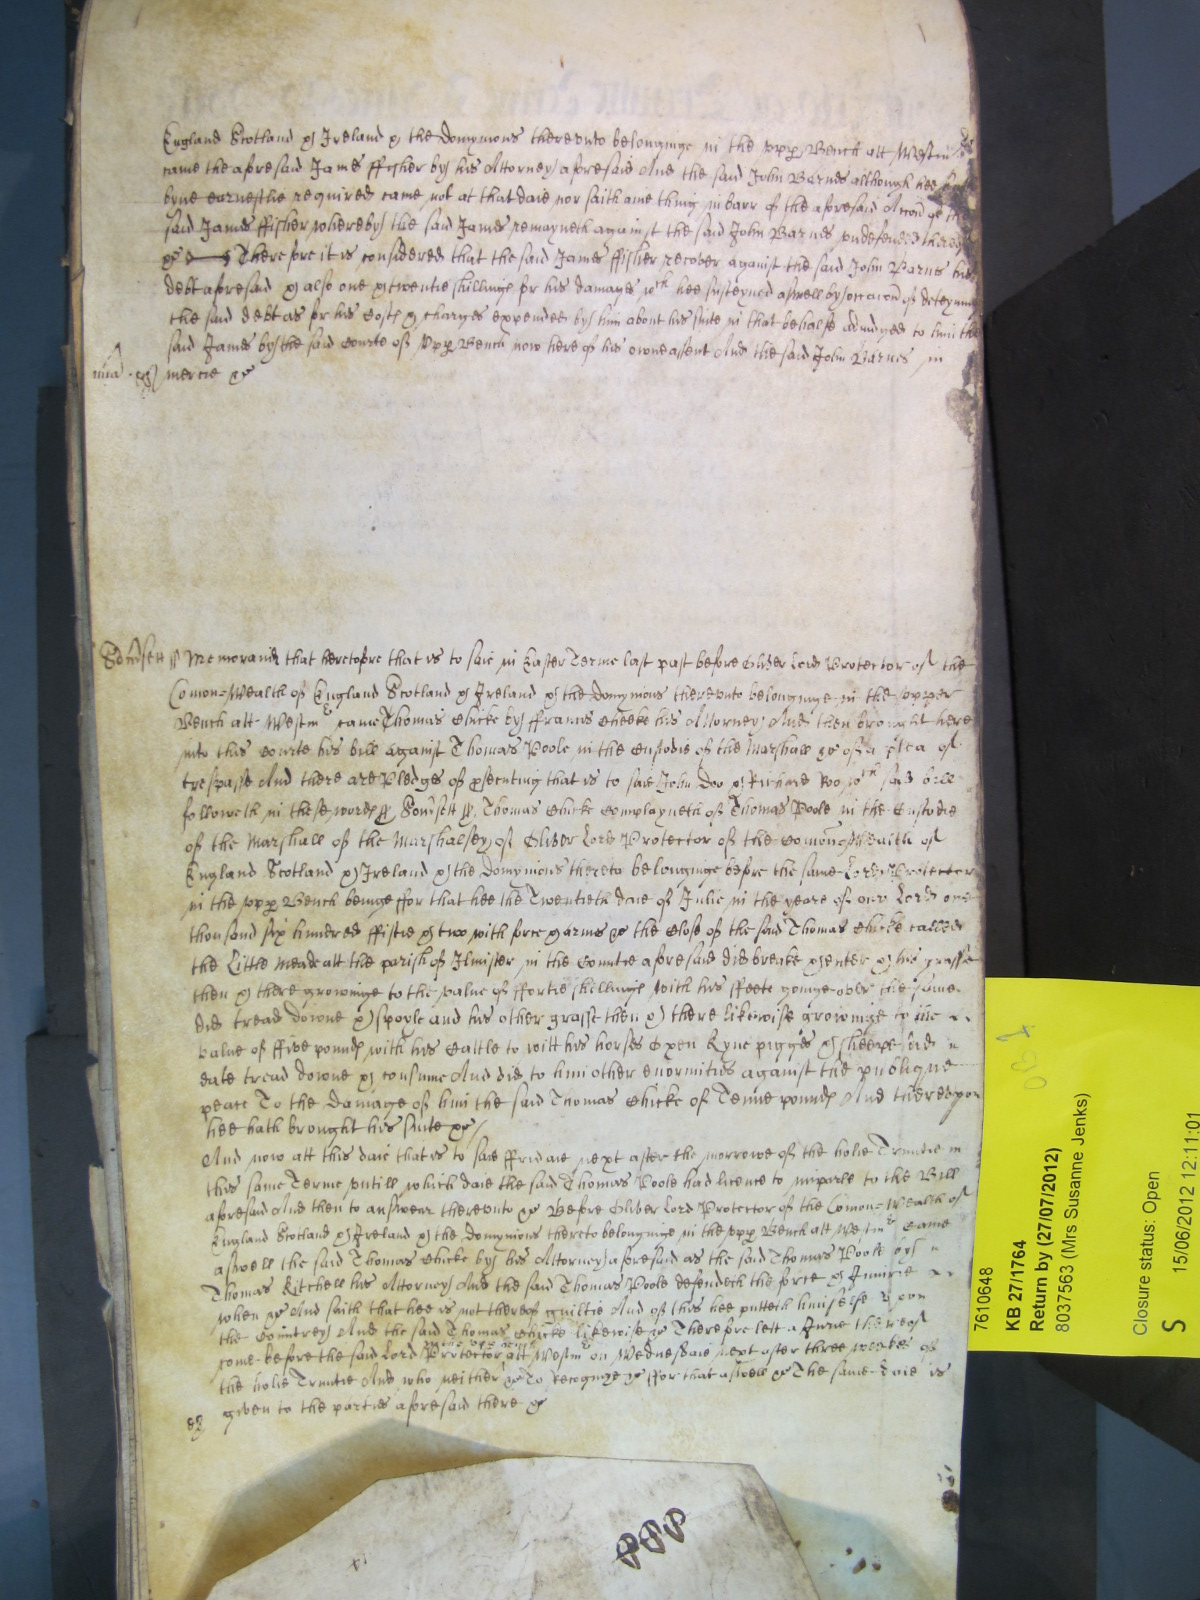 England Scotland & Ireland & the Domynions therevnto belonginge in the vpp Bench att Westm
came the aforesaid James ffisher by his Attorney aforesaid And the said John Barnes although hee
byne earnestlie required came not at that daie nor saith anie thing in barr of the aforesaid Accon of the
said James ffisher whereby the said James remayneth against the said John Barnes vndefended therein
&c Therefore it is considered that the said James ffisher recover against the said John Barnes his
debt aforesaid & also one & twentie shillings for his damages wch hee susteyned aswell by occacon of deteyning
the said debt as for his Costs & charges expended by him about his suite in that behalfe adiudged to him the
said James by the said Courte of vpp Bench now here of his owne assent And the said John Barnes in
mia mercie &c
Somsett ss Memorand that heretofore that is to saie in Easter Terme last past before Oliver Lord Protector of the
Comon-Wealth of England Scotland & Ireland & the Domynions therevnto belonginge in the vpper
Bench att Westmr came Thomas Chicke by ffrancis Cheeke his Attorney And then brought here
into this Courte his bill against Thomas Poole in the Custodie of the Marshall &c of a plea of
trespasse And there are Pledges of psecuting that is to saie John Doo & Richard Roo wch said bill
followeth in these words ss Somsett ss Thomas Chicke Complayneth of Thomas Poole in the Custodie
of the Marshall of the Marshalsey of Oliver Lord Protector of the Comon-Wealth of
England Scotland & Ireland & the Domynions thereto belonginge before the same Lord Protector
in the vpp Bench beinge ffor that hee the Twentieth daie of Julie in the yeare of our Lord one
thousand six hundred ffiftie & two with force & armes &c the Close of the said Thomas Chicke called
the Little Meade att the parish of Ilmister in the Countie aforesaid did breake & enter & his grasse
then & there growinge to the value of ffortie shillings with his ffeete goinge over the same
did tread downe & spoyle and his other grasse then & there likewise growinge to the
value of ffive pounds with his Cattle to witt his horses Oxen Kyne pigges & sheepe did
eate tread downe & consume And did to him other enormities against the publique
peace To the Damage of him the said Thomas Chicke of Tenne pounds And therevpon
hee hath brought his suite &c
And now att this daie that is to saie ffridaie next after the morrowe of the holie Trinitie in
this same Terme vntill which daie the said Thomas Poole had licence to imparle to the Bill
aforesaid And then to answear therevnto &c Before Oliver Lord Protector of the Comon-Wealth of
England Scotland & Ireland & the Domynions thereto belonginge in the vpp Bench att Westmr came
aswell the said Thomas Chicke by his Attorney aforesaid as the said Thomas Poole by
Thomas Kitchell his Attorney And the said Thomas Poole defendeth the force & Iniurie
when &c And saith that hee is not thereof guiltie And of this hee putteth himselfe vpon
the Countrey And the said Thomas Chicke likewise &c Therefore lett a Jurie thereof
come before the said Lord Protector att Westmr on Wednesdaie next after three weekes of
the holie Trinitie And who neither &c To Recognize &c ffor that aswell &c The same daie is
given to the parties aforesaid there &c
7610648
KB 27/1764
Return by (27/07/2012)
8037563 (Mrs Susanne Jenks)
Closure status: Open
S 15/06/2012 12:11:01